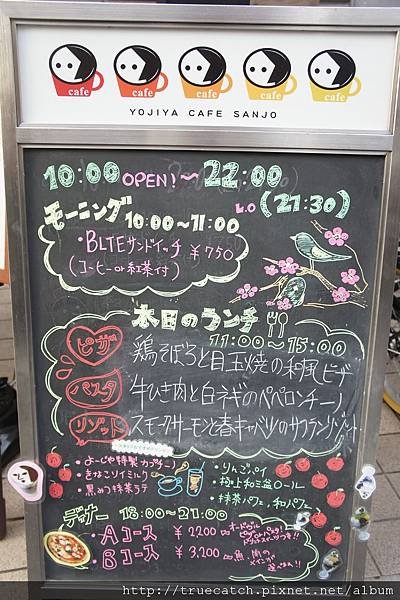 cafe cafe cafe cafe cafe
YOJIYA CAFE SANJO
10:00 OPEN!〜22:00
L.O (21:30)
モーニング 10:00〜11:00
・BLTEサンドイッチ ¥750
(コーヒー or 紅茶付)
本日のランチ
11:00〜15:00
ピザ 鶏そぼろと目玉焼の和風ピザ
パスタ 牛ひき肉と白ネギのペペロンチーノ
リゾット スモークサーモンと春キャベツのサフランリゾット
・よーじや特製カプチーノ
・きなこソイミルク
・黒みつ抹茶ラテ
・りんごパイ
・極上和三盆ロール
・抹茶パフェ,和パフェ
ディナー 18:00〜21:00
・Aコース ¥2200
・Bコース ¥3,200
http://truecatch.pixnet.net/album